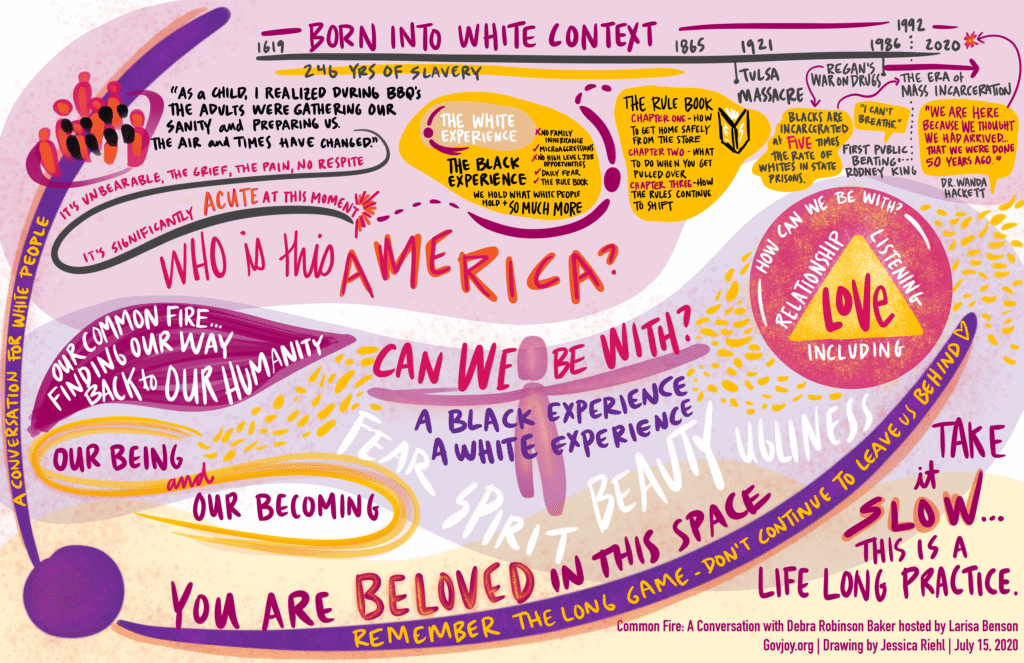 BORN INTO WHITE CONTEXT
1619
1865
1921
1986
1992
2020
246 YRS OF SLAVERY
TULSA
MASSACRE
REGAN'S
WAR ON DRUGS
THE ERA of
MASS INCARCERATION
"AS a CHILD, I REALIZED DURING BBQ's
THE ADULTS WERE GATHERING OUR
SANITY and PREPARING US.
THE AIR and TIMES HAVE CHANGED."
IT'S UNBEARABLE, THE GRIEF, THE PAIN, NO RESPITE
IT'S SIGNIFICANTLY ACUTE AT THIS MOMENT
THE WHITE
EXPERIENCE
THE BLACK
EXPERIENCE
WE HOLD WHAT WHITE PEOPLE
HOLD + SO MUCH MORE
NO FAMILY
INHERITANCE
MICROAGRESSIONS
NO HIGH LEVEL JOB
OPPORTUNITIES
DAILY FEAR
THE RULE BOOK
THE RULE BOOK
CHAPTER ONE - HOW
TO GET HOME SAFELY
FROM THE STORE
CHAPTER TWO - WHAT
TO DO WHEN YOU GET
PULLED OVER
CHAPTER THREE - HOW
THE RULES CONTINUE
TO SHIFT
BLACKS ARE
INCARCERATED
at FIVE TIMES
THE RATE OF
WHITES IN STATE
PRISONS.
"I CAN'T
BREATHE."
FIRST PUBLIC
BEATING...
RODNEY KING
"WE ARE HERE
BECAUSE WE THOUGHT
WE HAD ARRIVED...
THAT WE WERE DONE
50 YEARS AGO."
DR. WANDA
HACKETT
WHO is this AMERICA?
HOW CAN WE BE WITH?
RELATIONSHIP
LISTENING
LOVE
INCLUDING
A CONVERSATION FOR WHITE PEOPLE
OUR COMMON FIRE...
FINDING OUR WAY
BACK to OUR HUMANITY
CAN WE BE WITH?
A BLACK EXPERIENCE
A WHITE EXPERIENCE
FEAR SPIRIT BEAUTY UGLINESS
OUR BEING
and
OUR BECOMING
YOU ARE BELOVED IN THIS SPACE
REMEMBER THE LONG GAME - DON'T CONTINUE TO LEAVE US BEHIND
TAKE
it
SLOW...
THIS IS A
LIFE LONG PRACTICE.
Common Fire: A Conversation with Debra Robinson Baker hosted by Larisa Benson
Govjoy.org | Drawing by Jessica Riehl | July 15, 2020